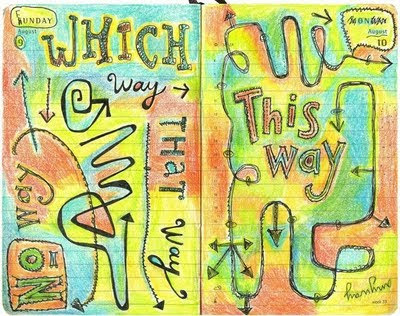 SUNDAY
August
9
WHICH
Way
THAT Way
NO way
August
10
This
Way
week 33